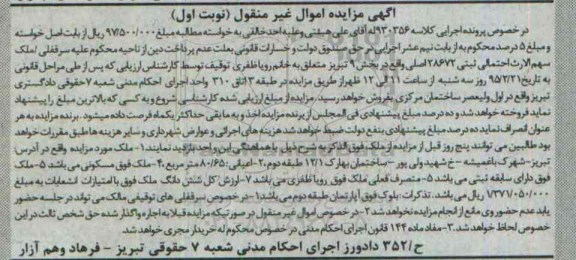 آگهی مزایده اموال غیر منقول (نوبت اول)
در خصوص پرونده اجرایی کلاسه ۹۳۰۳۵۶ له آقای علی هیئتی و علیه احد خالقی به خواسته مطالبه مبلغ ۹۷/۵۰۰/۰۰۰ ریال از بابت اصل خواسته
و مبلغ ۵ درصد محکوم به از بابت نیم عشر اجرایی در حق صندوق دولت و خسارات قانونی بعلت عدم پرداخت دین از ناحیه محکوم علیه سرقفلی /ملک
سهم الارث احتمالی ثبتی ۲۸۶۷۲ اصلی واقع در بخش ۹ تبریز متعلق به خانم رویا ظفری توقیف توسط کارشناس ارزیابی که پس از طی مراحل قانونی
به تاریخ ۹۵/۲/۲۱ روز سه شنبه از ساعت ۱۱ الی ۱۲ ظهر از طریق مزایده در طبقه ۳ اتاق ۳۱۰ واحد اجرای احکام مدنی شعبه ۷ حقوقی دادگستری
تبریز واقع در اول ولیعصر ساختمان مرکزی بفروش خواهد رسید. مزایده از مبلغ ارزیابی شده کارشناسی شروع و به کسی که بالاترین مبلغ را پیشنهاد
نماید فروخته خواهد شد و ده درصد مبلغ پیشنهادی فی المجلس از برنده مزایده اخذ و به مابقی حداکثر یکماه فرصت داده میشود. برنده مزایده به هر
عنوان انصراف نماید ده درصد مبلغ پیشنهادی بنفع دولت ضبط خواهد شد هزینه های اجرائی و عوارض شهرداری و سایر هزینه ها طبق مقررات خواهد
بود طالبین می توانند پنج روز قبل از مزایده از ملک فوق الذکر به شرح ذیل با هماهنگی این واحد بازدید نمایند. ۱- ملک مورد مزایده واقع در آدرس:
تبریز- شهرک باغمیشه -خ شهید ولی پور - ساختمان بهارک ۱۲/۱ طبقه دوم ۲- اعیانی: ۸۰/۶۵ متر مربع ۴- ملک فوق مسکونی می باشد ۵- ملک
فوق دارای سابقه ثبتی می باشد ۵- متصرف فعلی ملک فوق رویا ظفری می باشد ۷- ارزش کل شش دانگ ملک فوق با امتیازات انشعابات به مبلغ
۱/۳۷۱/۰۵۰/۰۰۰ ریال می باشد. تذکرات: بلوک فوق آپارتمان طبقه دوم می باشد ۱- در خصوص سرقفلی های توقیفی مالک می تواند در جلسه حضور
یابد عدم حضور وی مانع از انجام مزایده نخواهد شد ۲- در خصوص اموال غیر منقول در صورتیکه مزایده قبلا به اجاره واگذار شده حق شخص ثالث در این
خصوص لحاظ خواهد شد. ۳- مفاد ماده ۱۴۴ قانون اجرای احکام مدنی در خصوص محکوم له خریدار مجری خواهد شد
ح/۳۵۲ دادورز اجرای احکام مدنی شعبه ۷ حقوقی تبریز - فرهاد وهم آزار